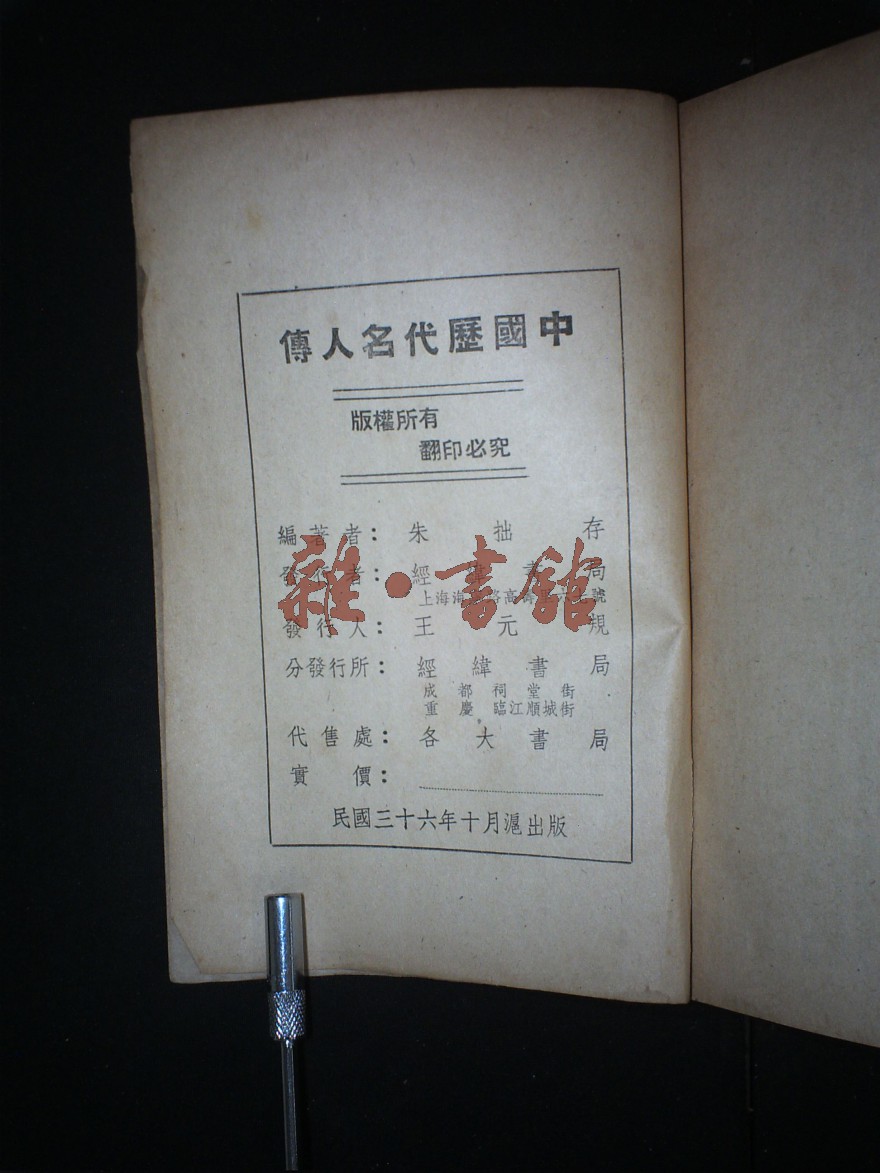 中國歷代名人傳
版權所有
翻印必究
編著者：朱拙存
發行者：經緯書局
上海海 路高壽里六 號
發行人：王元規
分發行所：經緯書局
成都祠堂街
重慶臨江順城街
代售處：各大書局
實價：
民國三十六年十月滬出版
雜·書館